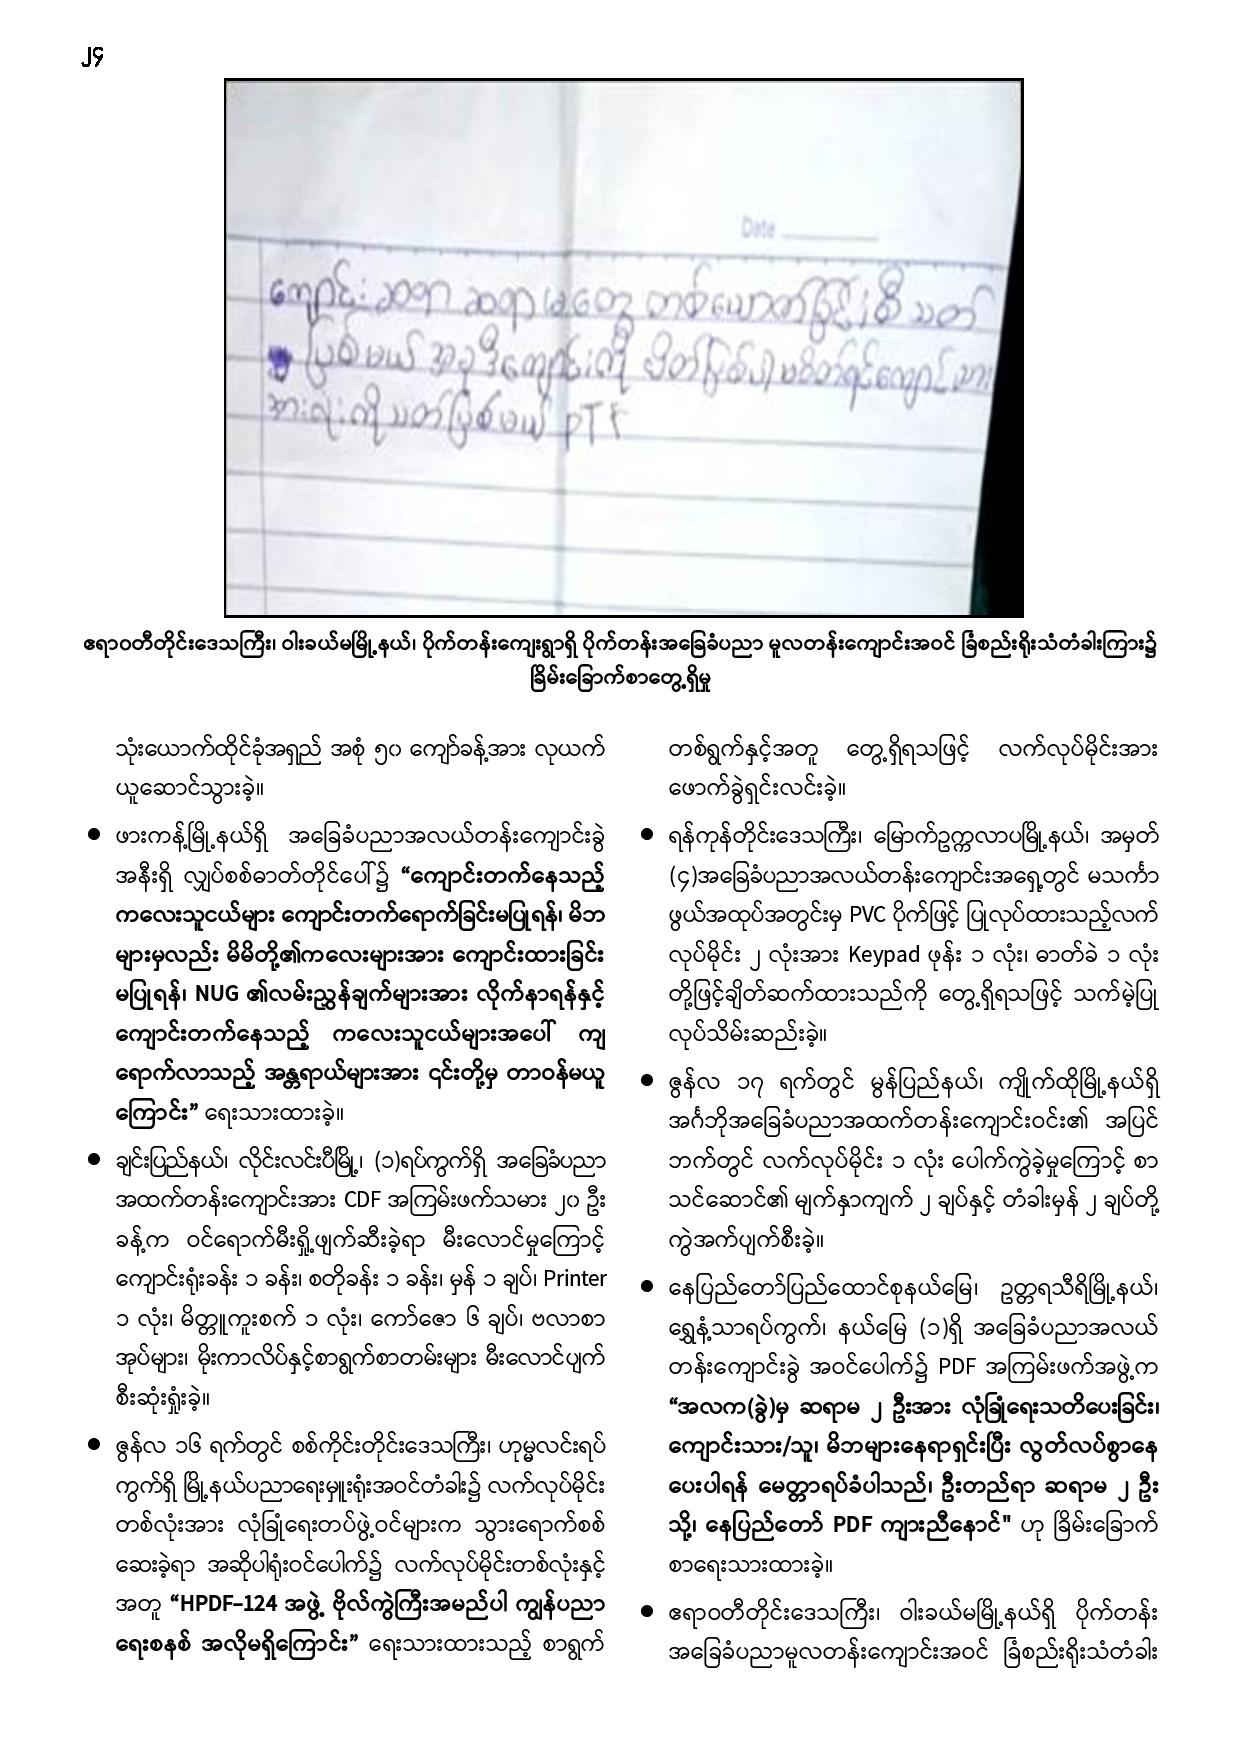 ၂၄
Date
ကျောင်းဆရာ ဆရာမတွေ တစ်ယောက်ခြင်းစီ သတ်
ပြစ်မယ် အခုဒီကျောင်းကို ပိတ်ပြစ်ပါ မပိတ်ရင်ကျောင်းသား
အားလုံးကိုသတ်ပြစ်မယ် PTF
ဧရာဝတီတိုင်းဒေသကြီး၊ ဝါးခယ်မမြို့နယ်၊ ပိုက်တန်းကျေးရွာရှိ ပိုက်တန်းအခြေခံပညာ မူလတန်းကျောင်းအဝင် ခြံစည်းရိုးသံတံခါးကြား၌
ခြိမ်းခြောက်စာတွေ့ရှိမှု
သုံးယောက်ထိုင်ခုံအရှည် အစုံ ၅၀ ကျော်ခန့်အား လုယက်
ယူဆောင်သွားခဲ့။
● ဖားကန့်မြို့နယ်ရှိ အခြေခံပညာအလယ်တန်းကျောင်းခွဲ
အနီးရှိ လျှပ်စစ်ဓာတ်တိုင်ပေါ်၌ “ကျောင်းတက်နေသည့်
ကလေးသူငယ်များ ကျောင်းတက်ရောက်ခြင်းမပြုရန်၊ မိဘ
များမှလည်း မိမိတို့၏ကလေးများအား ကျောင်းထားခြင်း
မပြုရန်၊ NUG ၏လမ်းညွှန်ချက်များအား လိုက်နာရန်နှင့်
ကျောင်းတက်နေသည့် ကလေးသူငယ်များအပေါ် ကျ
ရောက်လာသည့် အန္တရာယ်များအား ၎င်းတို့မှ တာဝန်မယူ
ကြောင်း” ရေးသားထားခဲ့။
● ချင်းပြည်နယ်၊ လိုင်းလင်းပီမြို့၊ (၁)ရပ်ကွက်ရှိ အခြေခံပညာ
အထက်တန်းကျောင်းအား CDF အကြမ်းဖက်သမား ၂၀ ဦး
ခန့်က ဝင်ရောက်မီးရှို့ဖျက်ဆီးခဲ့ရာ မီးလောင်မှုကြောင့်
ကျောင်းရုံးခန်း ၁ ခန်း၊ စတိုခန်း ၁ ခန်း၊ မှန် ၁ ချပ်၊ Printer
၁ လုံး၊ မိတ္တူကူးစက် ၁ လုံး၊ ကော်ဇော ၆ ချပ်၊ ဗလာစာ
အုပ်များ၊ မိုးကာလိပ်နှင့်စာရွက်စာတမ်းများ မီးလောင်ပျက်
စီးဆုံးရှုံးခဲ့။
● ဇွန်လ ၁၆ ရက်တွင် စစ်ကိုင်းတိုင်းဒေသကြီး၊ ဟုမ္မလင်းရပ်
ကွက်ရှိ မြို့နယ်ပညာရေးမှူးရုံးအဝင်တံခါး၌ လက်လုပ်မိုင်း
တစ်လုံးအား လုံခြုံရေးတပ်ဖွဲ့ဝင်များက သွားရောက်စစ်
ဆေးခဲ့ရာ အဆိုပါရုံးဝင်ပေါက်၌ လက်လုပ်မိုင်းတစ်လုံးနှင့်
အတူ “HPDF–124 အဖွဲ့ ဗိုလ်ကွဲကြီးအမည်ပါ ကျွန်ပညာ
ရေးစနစ် အလိုမရှိကြောင်း” ရေးသားထားသည့် စာရွက်
တစ်ရွက်နှင့်အတူ တွေ့ရှိရသဖြင့် လက်လုပ်မိုင်းအား
ဖောက်ခွဲရှင်းလင်းခဲ့။
● ရန်ကုန်တိုင်းဒေသကြီး၊ မြောက်ဥက္ကလာပမြို့နယ်၊ အမှတ်
(၄)အခြေခံပညာအလယ်တန်းကျောင်းအရှေ့တွင် မသင်္ကာ
ဖွယ်အထုပ်အတွင်းမှ PVC ပိုက်ဖြင့် ပြုလုပ်ထားသည့်လက်
လုပ်မိုင်း ၂ လုံးအား Keypad ဖုန်း ၁ လုံး၊ ဓာတ်ခဲ ၁ လုံး
တို့ဖြင့်ချိတ်ဆက်ထားသည်ကို တွေ့ရှိရသဖြင့် သက်မဲ့ပြု
လုပ်သိမ်းဆည်းခဲ့။
● ဇွန်လ ၁၇ ရက်တွင် မွန်ပြည်နယ်၊ ကျိုက်ထိုမြို့နယ်ရှိ
အင်္ဂဘိုအခြေခံပညာအထက်တန်းကျောင်းဝင်း၏ အပြင်
ဘက်တွင် လက်လုပ်မိုင်း ၁ လုံး ပေါက်ကွဲခဲ့မှုကြောင့် စာ
သင်ဆောင်၏ မျက်နှာကျက် ၂ ချပ်နှင့် တံခါးမှန် ၂ ချပ်တို့
ကွဲအက်ပျက်စီးခဲ့။
● နေပြည်တော်ပြည်ထောင်စုနယ်မြေ၊ ဥတ္တရသီရိမြို့နယ်၊
ရွှေနံ့သာရပ်ကွက်၊ နယ်မြေ (၁)ရှိ အခြေခံပညာအလယ်
တန်းကျောင်းခွဲ အဝင်ပေါက်၌ PDF အကြမ်းဖက်အဖွဲ့က
“အလက(ခွဲ)မှ ဆရာမ ၂ ဦးအား လုံခြုံရေးသတိပေးခြင်း၊
ကျောင်းသား/သူ၊ မိဘများနေရာရှင်းပြီး လွတ်လပ်စွာနေ
ပေးပါရန် မေတ္တာရပ်ခံပါသည်၊ ဦးတည်ရာ ဆရာမ ၂ ဦး
သို့၊ နေပြည်တော် PDF ကျားညီနောင်" ဟု ခြိမ်းခြောက်
စာရေးသားထားခဲ့။
● ဧရာဝတီတိုင်းဒေသကြီး၊ ဝါးခယ်မမြို့နယ်ရှိ ပိုက်တန်း
အခြေခံပညာမူလတန်းကျောင်းအဝင် ခြံစည်းရိုးသံတံခါး